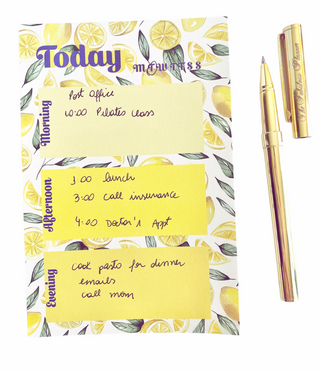 Today
M T W T F S S
Morning
Post Office
10:00 Pilates class
Afternoon
1:00 lunch
3:00 call insurance
4:20 Doctor's Appt
Evening
cook pasta for dinner
emails
call mom